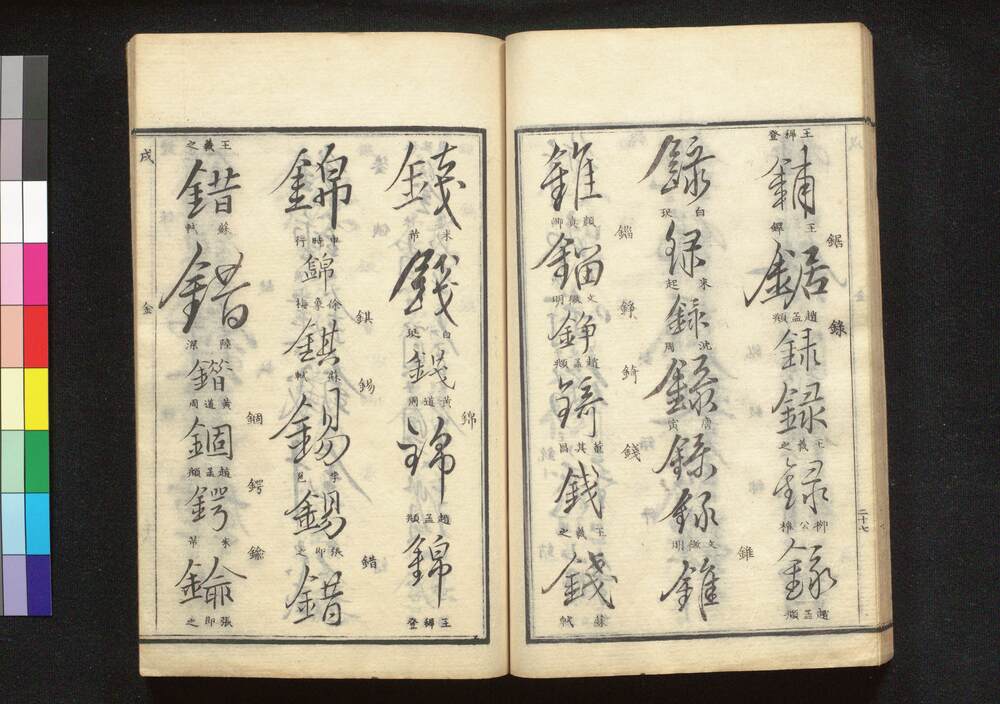 二十七
王穉登
鋪
王鐸
鋸
鋸
趙孟頫
錄
錄
錄
王羲之
錄
柳公權
錄
趙孟頫
錄
白珽
錄
錄
沈周
錄
唐寅
錄
錄
文徵明
錐
錐
錐
顏真卿
錙
錙
文徵明
錚
錚
趙孟頫
錡
錡
董其昌
錢
錢
王羲之
錢
蘇軾
錢
米芾
錢
白珽
錢
黃道周
錦
錦
趙孟頫
錦
王穉登
錦
申時行
錦
徐魯梅
錤
錤
蘇軾
錫
錫
李邕
錫
張即之
錯
錯
王羲之
錯
蘇軾
錯
陸深
錯
黃道周
錮
錮
趙孟頫
鍔
鍔
米芾
張即之
戌
金